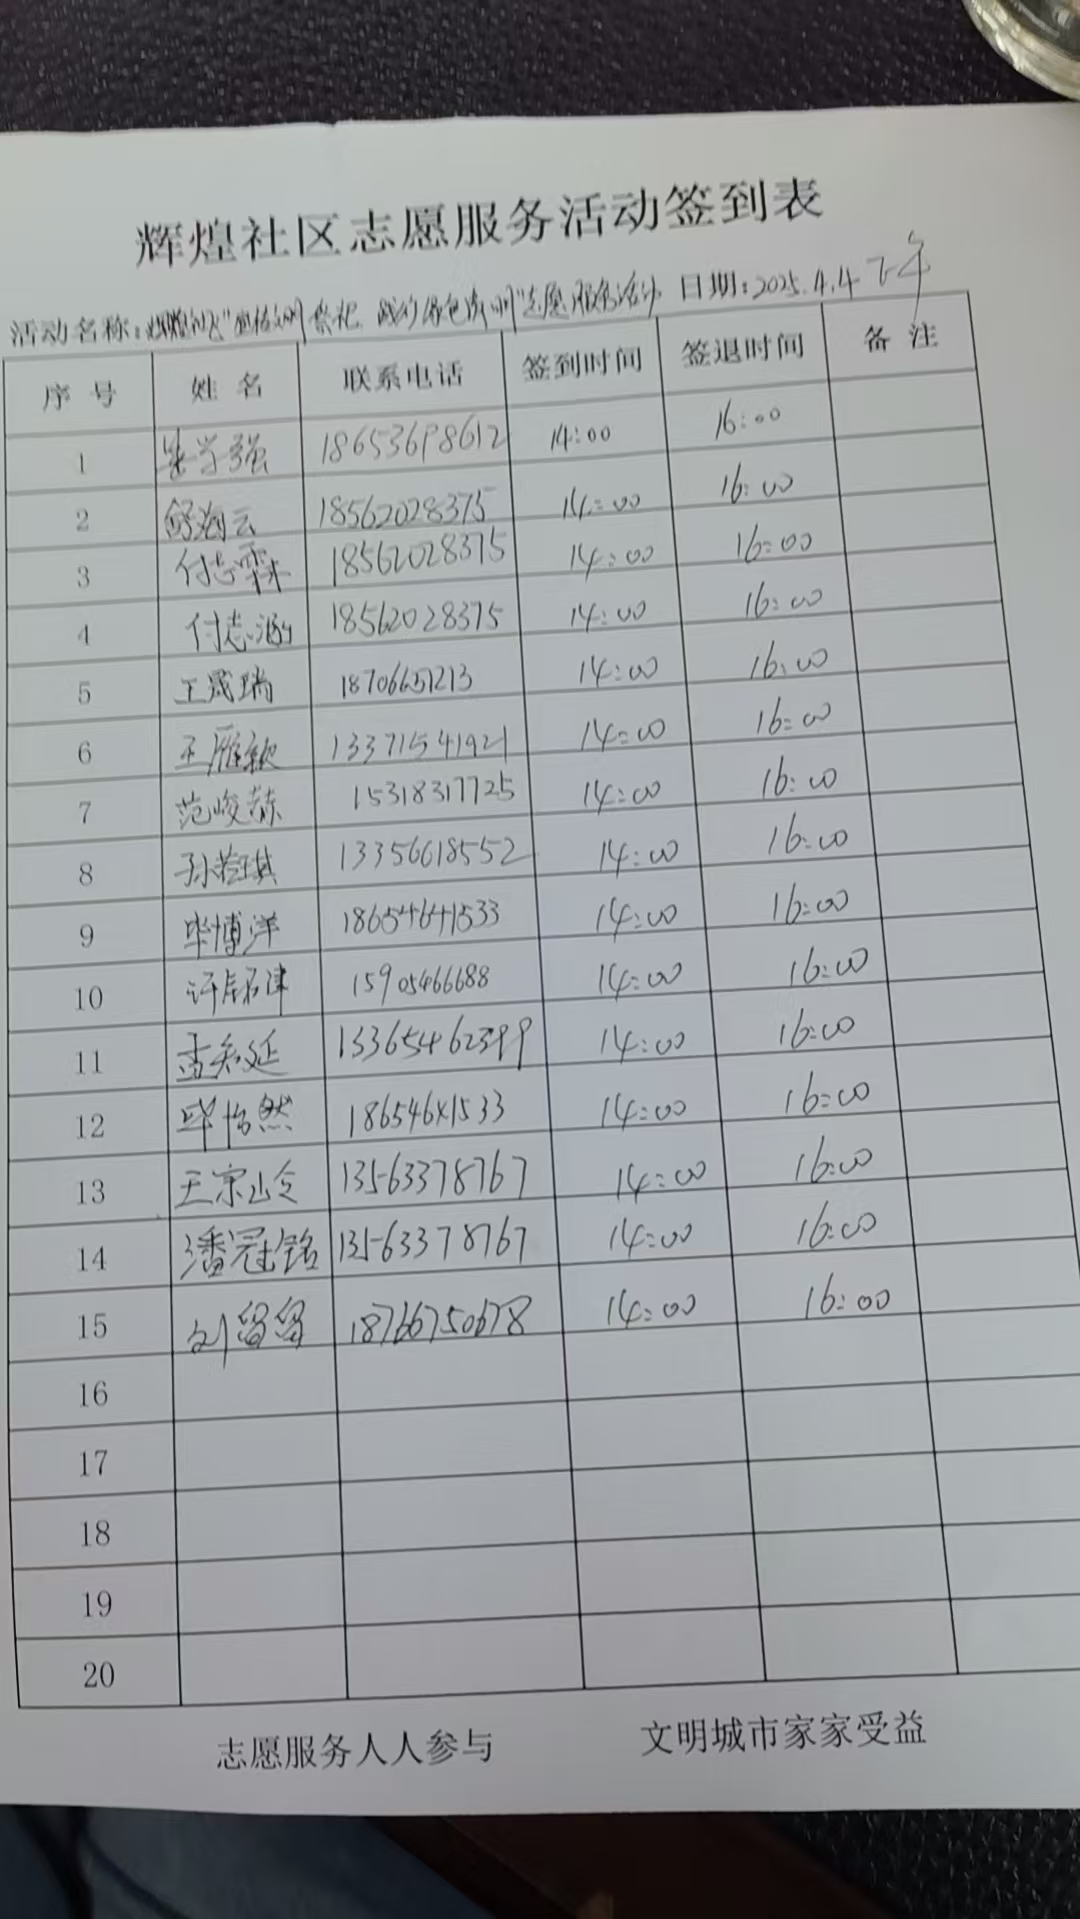 辉煌社区志愿服务活动签到表
活动名称:辉煌社区"文明祭祀 绿色清明"志愿服务活动 日期:2025.4.4下午
序号 姓名 联系电话 签到时间 签退时间 备注
1 学强 18653698612 14:00 16:00
2 舒海云 18562028375 14:00 16:00
3 付志霖 18562028375 14:00 16:00
4 付志涵 18562028375 14:00 16:00
5 王晟瑞 18706651213 14:00 16:00
6 王雁歆 13371541921 14:00 16:00
7 范峻赫 15318317725 14:00 16:00
8 孙若琪 13356618552 14:00 16:00
9 毕博洋 18654641533 14:00 16:00
10 许 15905466688 14:00 16:00
11 延 13365462399 14:00 16:00
12 毕怡然 186546x1533 14:00 16:00
13 王宗 13563378767 14:00 16:00
14 潘冠铭 13563378767 14:00 16:00
15 刘留留 18766750678 14:00 16:00
16
17
18
19
20
志愿服务人人参与 文明城市家家受益